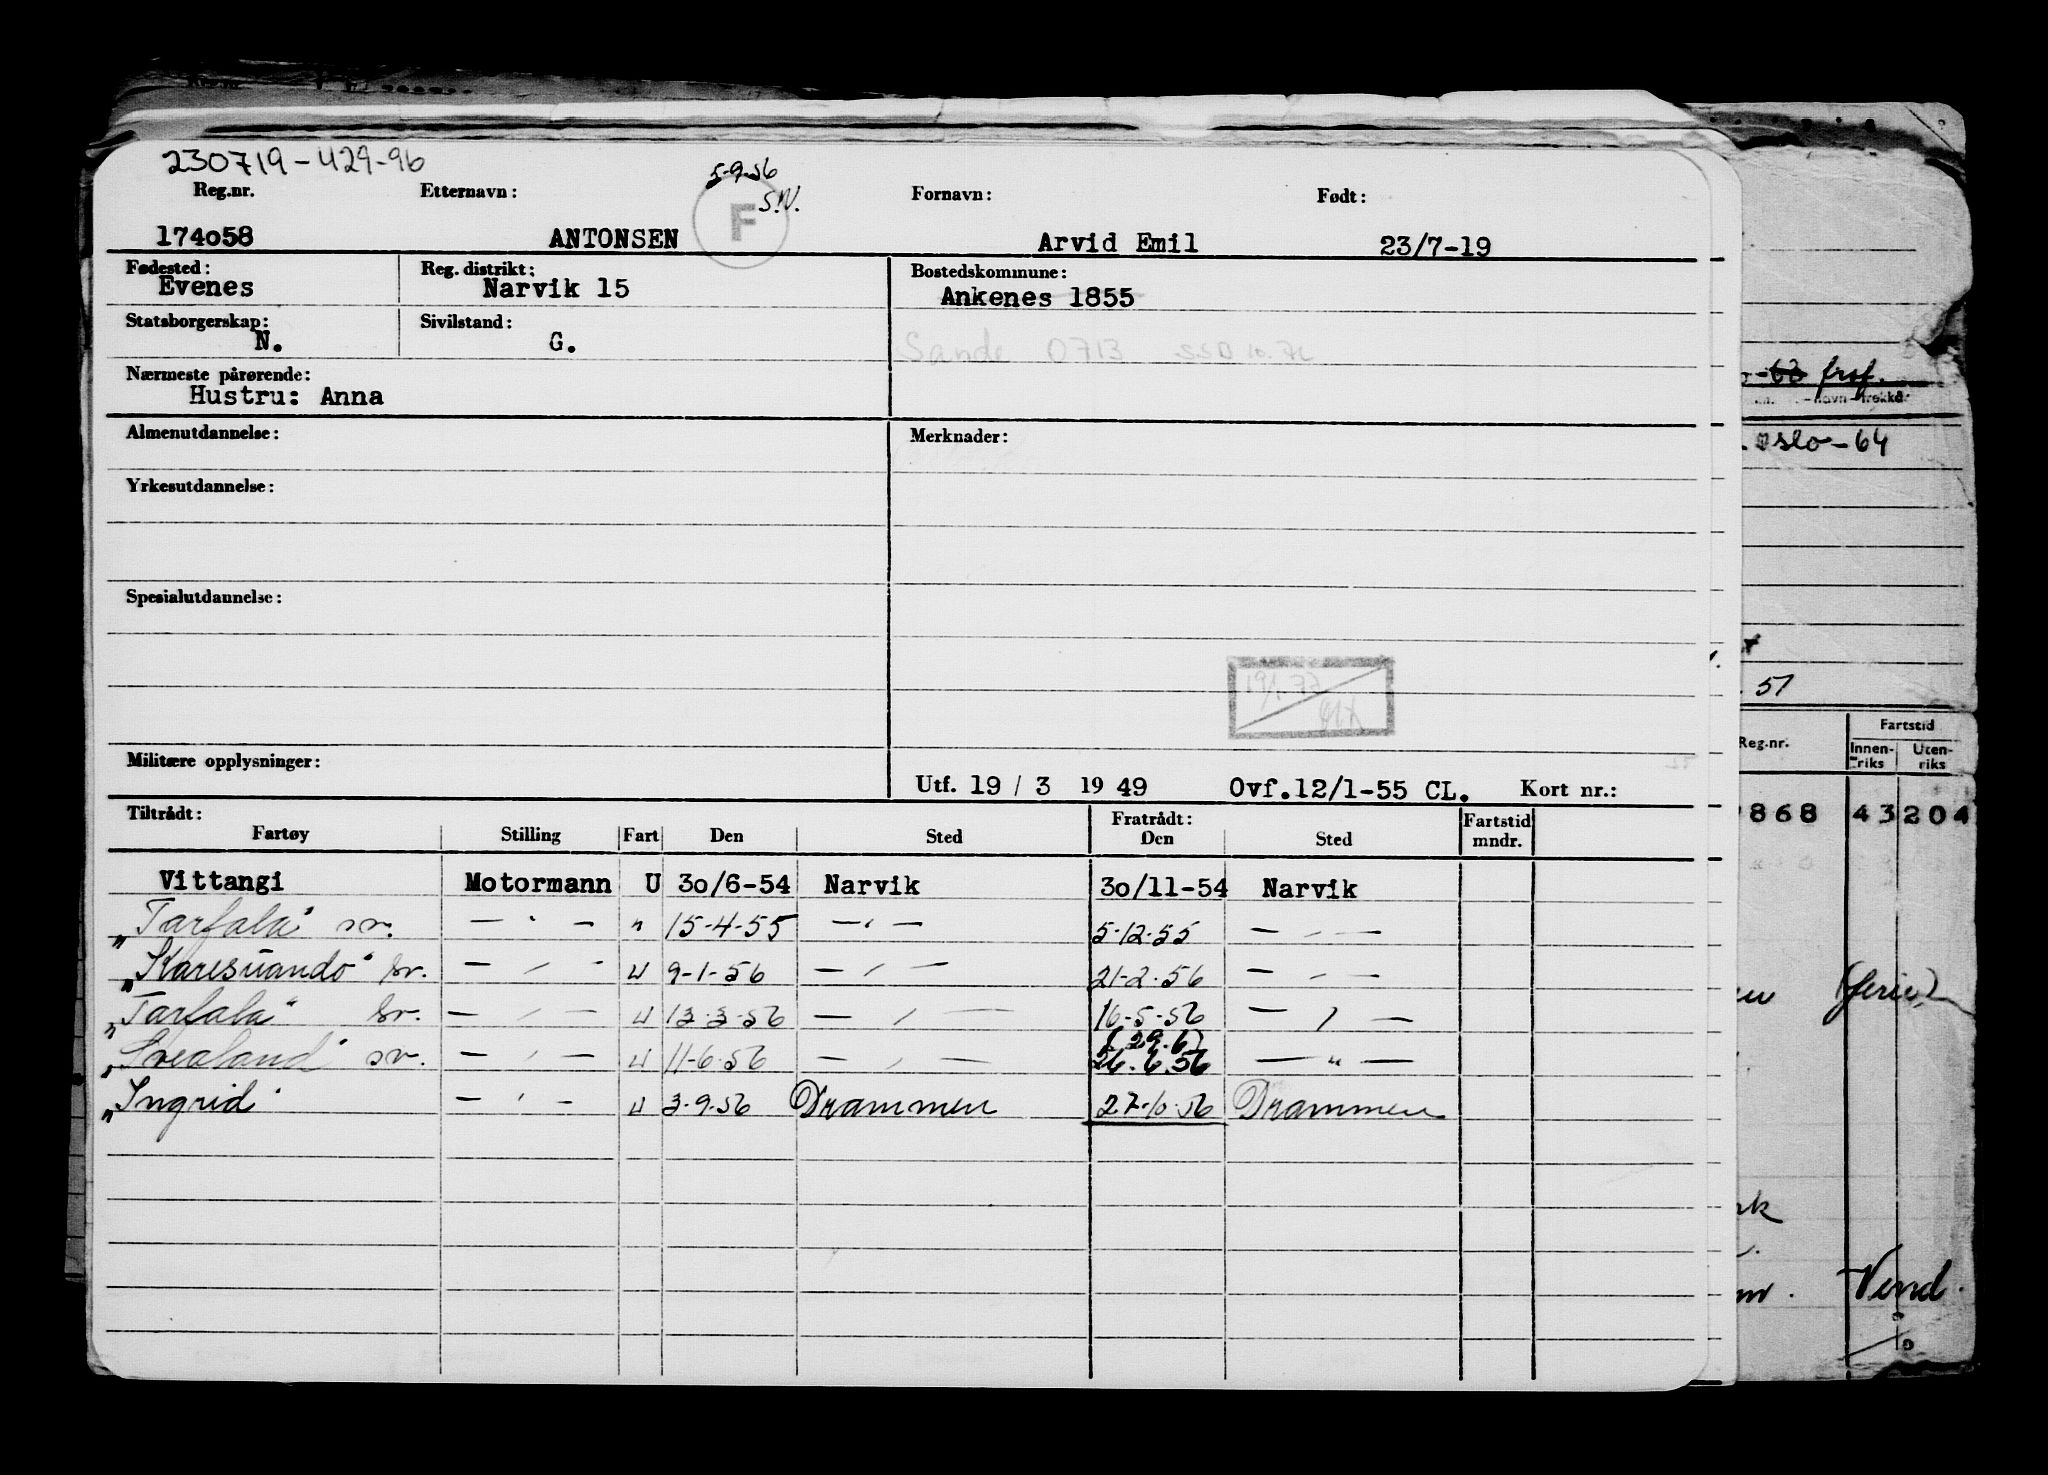 230719-429-96
5-9-56
S.N.
Reg.nr. Etternavn: F Fornavn: Født:
174o58 ANTONSEN Arvid Emil 23/7-19
Fødested: Reg. distrikt: Bostedskommune:
Evenes Narvik 15 Ankenes 1855
Statsborgerskap: Sivilstand:
N. G. Sande 0713
Nærmeste pårørende:
Hustru: Anna
Almenutdannelse: Merknader:
Yrkesutdannelse:
Spesialutdannelse:
Militære opplysninger:
Utf. 19 / 3 19 49 Ovf.12/1-55 CL. Kort nr.:
Tiltrådt: Fratrådt: Fartstid
Fartøy Stilling Fart Den Sted Den Sted mndr.
Vittangi Motormann U 3o/6-54 Narvik 3o/11-54 Narvik
„Tarfala" sv. — " — " 15-4-55 — " — 5-12-55 — " —
„Karesuando" sv. — " — U 9-1-56 — " — 21-2-56 — " —
„Tarfala" sv. — " — U 13-3-56 — " — 16-5-56 — " —
(29.6)
„Svealand" sv. — " — U 11-6-56 — " — 26.6.56 — " —
„Ingrid" — " — U 3-9-56 Drammen 27-10-56 Drammen
-63 frsf.
navn-trekke
oslo-64
51
Reg.nr. Fartstid
Innen-riks Uten-riks
868 43 204
(ferie)
Vend.